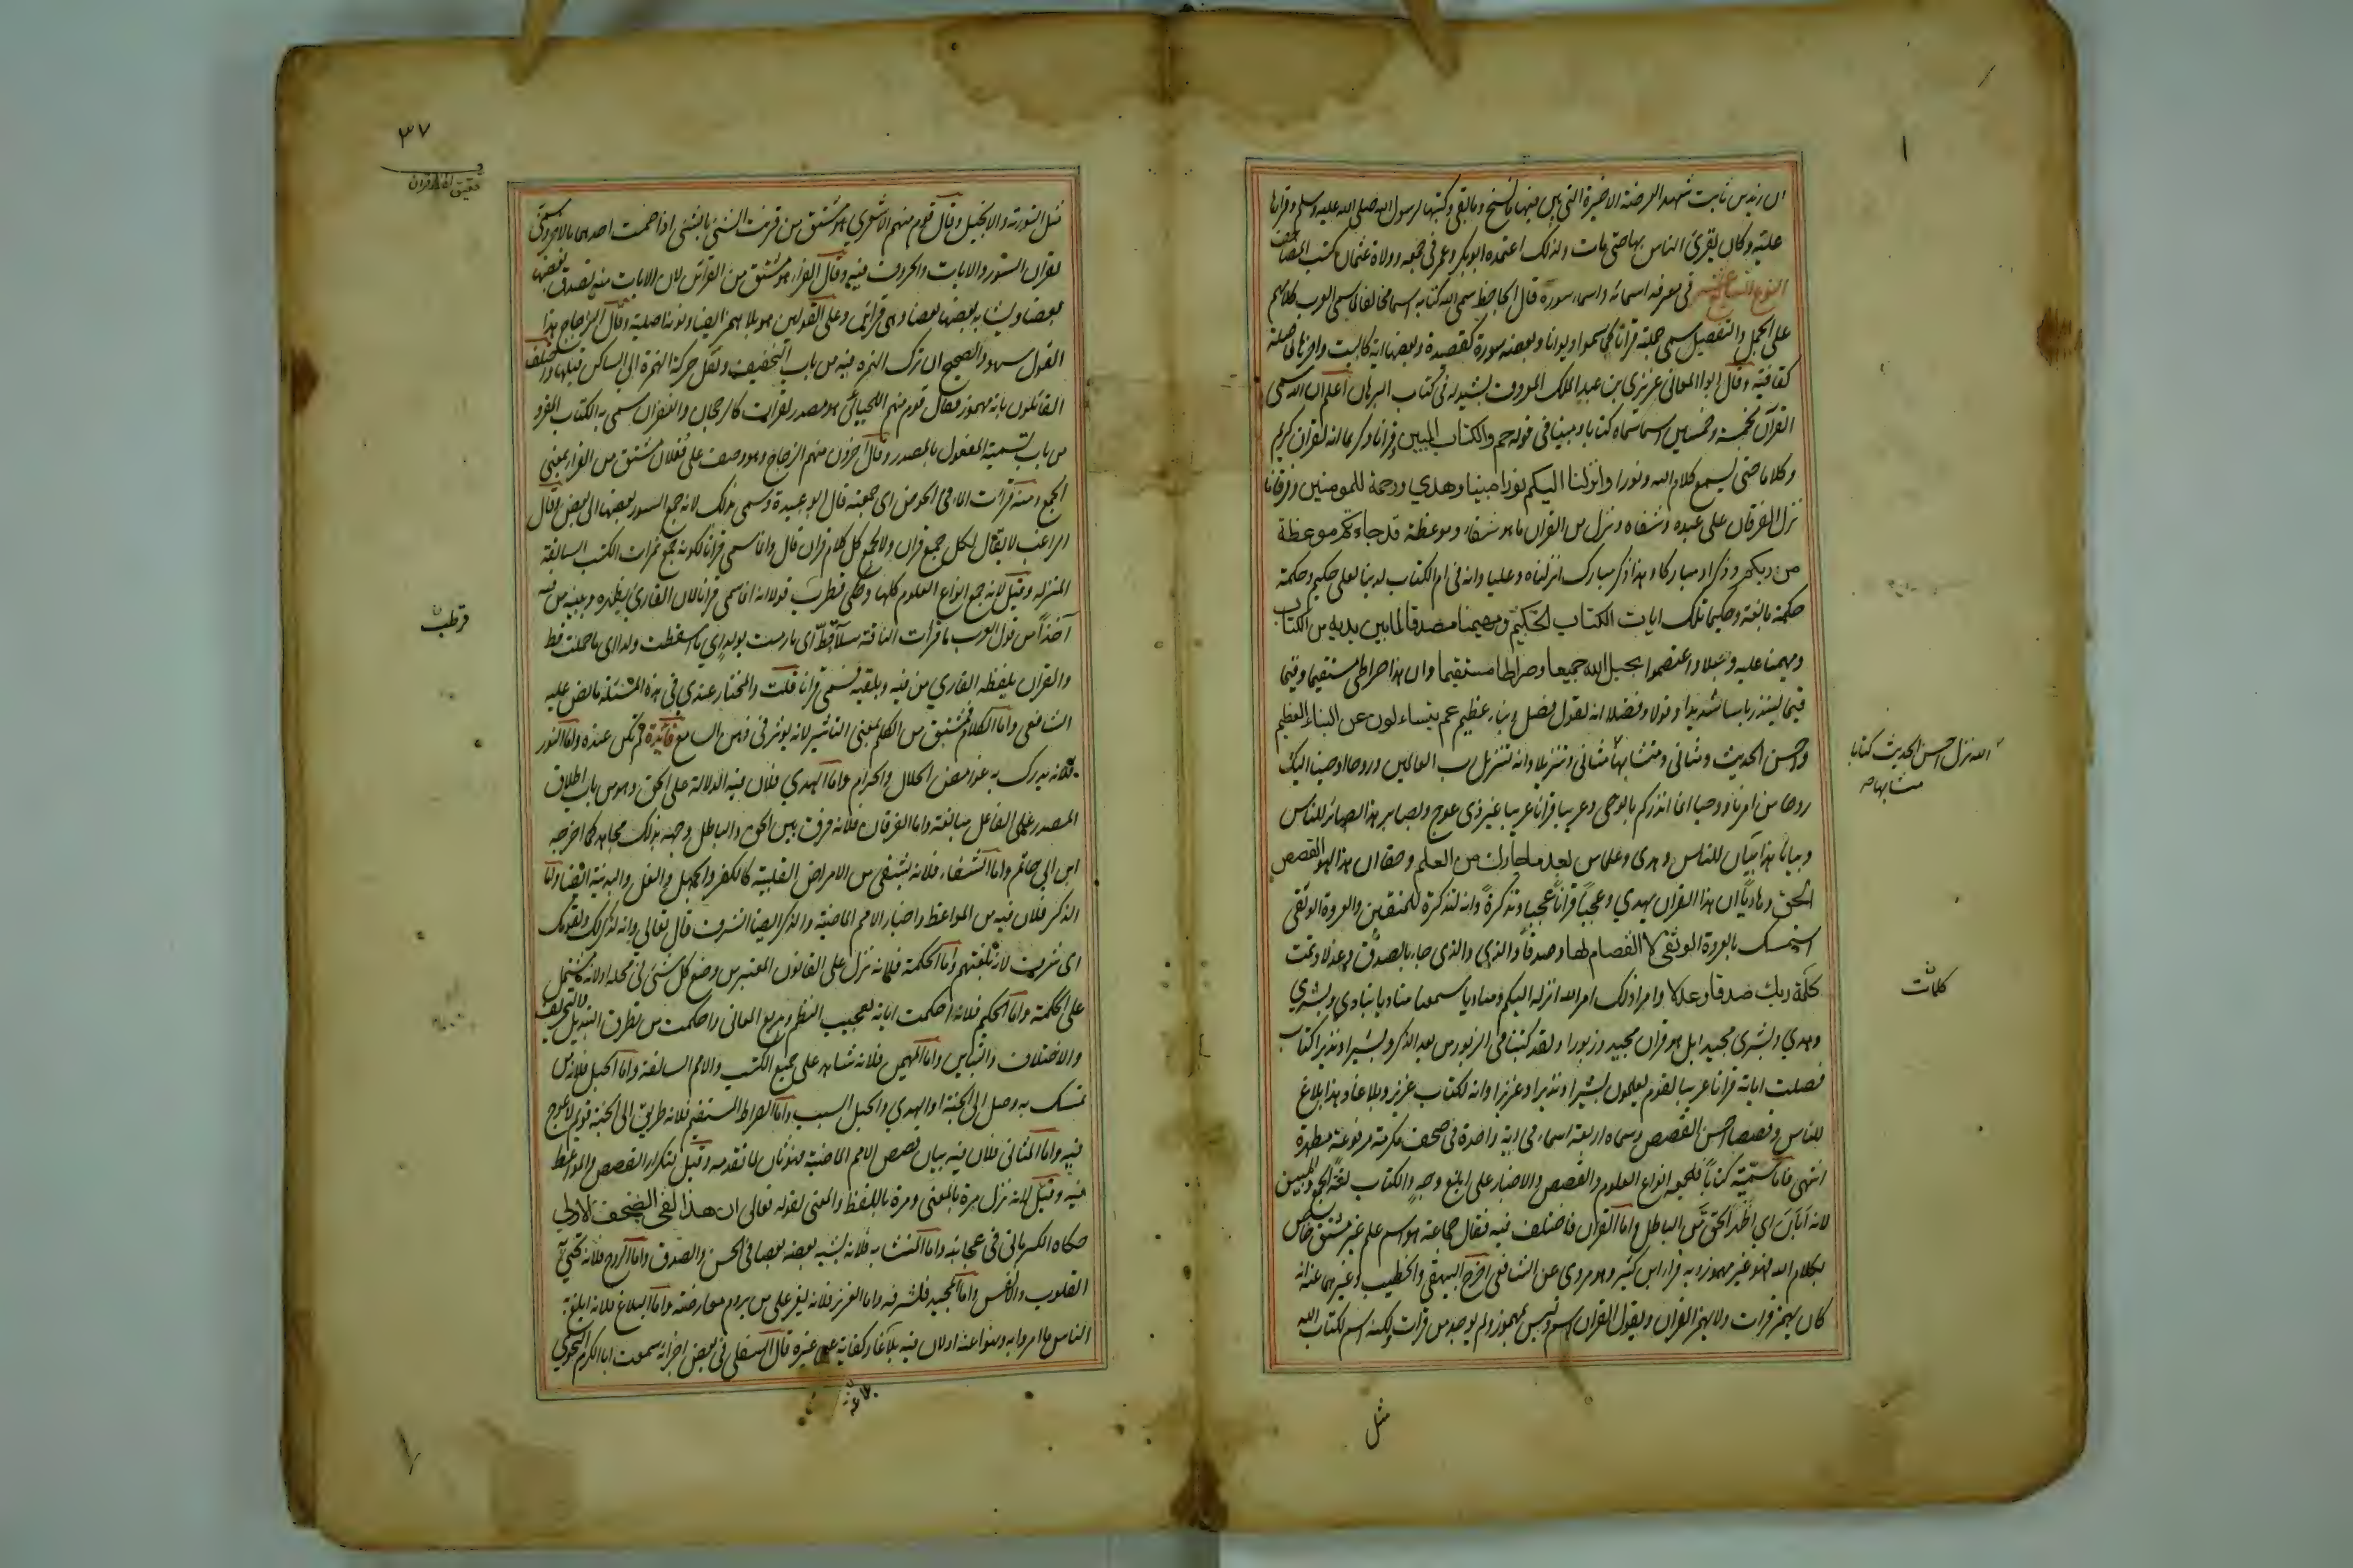 ان زيد بن ثابت شهد العرضة الاخيرة التي بين فيها ما نسخ وما بقي وكتبها لرسول الله صلى الله عليه وسلم وقراها
عليه وكان يقرئ الناس بها حتى مات ولذلك اعتمده ابو بكر وعمر في جمعه وولاه عثمان كتب المصاحف
النوع السابع عشر في معرفة اسمائه واسماء سوره قال الجاحظ سمى الله كتابه اسما مخالفا لما سمى العرب كلامهم
على الجمل والتفصيل سمى جملته قرانا كما سموا ديوانا وبعضه سورة كقصيدة وبعضها اية كالبيت واخرها فاصلة
كقافية وقال ابو المعالي عزيزي بن عبد الملك المعروف بشيدله في كتاب البرهان اعلم ان الله سمى
القرآن بخمسة وخمسين اسما سماه كتابا ومبينا في قوله حم والكتاب المبين وقرانا وكريما انه لقران كريم
وكلاما حتى يسمع كلام الله ونورا وانزلنا اليكم نورا مبينا وهدي ورحمة للمومنين وفرقانا
نزل الفرقان على عبده وشفاء وننزل من القران ما هو شفاء وموعظة قد جاءتكم موعظة
من ربكم وذكرا ومباركا وهذا ذكر مبارك انزلناه وعليا وانه في ام الكتاب لدينا لعلي حكيم وحكمة
حكمة بالغة وحكيما تلك ايات الكتاب الحكيم ومهيمنا مصدقا لما بين يديه من الكتاب
ومهيمنا عليه وحبلا واعتصموا بحبل الله جميعا وصراطا مستقيما وان هذا صراطي مستقيما وقيما
قيما لينذر باسا شديدا وقولا وفصلا انه لقول فصل ونباء عظيم عم يتساءلون عن النباء العظيم
واحسن الحديث ومثاني ومتشابها مثاني وتنزيلا وانه لتنزيل رب العالمين وروحا اوحينا اليك
روحا من امرنا ووحيا انما انذركم بالوحي وعربيا قرانا عربيا غير ذي عوج وبصاير هذا بصائر للناس
وبيانا هذا بيان للناس وهدى وعلما من بعد ما جاءك من العلم وحقا ان هذا لهو القصص
الحق وهاديا ان هذا القران يهدي وعجبا قرانا عجبا وتذكرة وانه لتذكرة للمتقين والعروة الوثقى
استمسك بالعروة الوثقى لا انفصام لها وصدقا والذي والذي جاء بالصدق وعدلا وتمت
كلمة ربك صدقا وعدلا وامرا ذلك امر الله انزله اليكم ومناديا سمعنا مناديا ينادي وبشري
وهدي وبشرى ومجيدا بل هو قران مجيد وزبورا ولقد كتبنا في الزبور من بعد الذكر وبشيرا ونذيرا كتاب
فصلت اياته قرانا عربيا لقوم يعلمون بشيرا ونذيرا وعزيزا وانه لكتاب عزيز وبلاغا هذا بلاغ
للناس وقصصا احسن القصص وسماه اربعة اسماء في اية واحدة في صحف مكرمة مرفوعة مطهرة
انتهى فاما تسميته كتابا فلجمعه انواع العلوم والقصص والاخبار على ابلغ وجه والكتاب لغة الجمع والمبين
لانه ابان اي اظهر الحق من الباطل واما القرآن فاختلف فيه فقال جماعة هو اسم علم غير مشتق خاص
بكلام الله فهو غير مهموز وبه قرا ابن كثير وهو مروي عن الشافعي اخرج البيهقي والخطيب وغيرهما عنه انه
كان يهمز قرات ولا يهمز القران ويقول القران اسم وليس بمهموز ولم يوخذ من قرات ولكنه اسم لكتاب الله
الله نزل احسن الحديث كتابا
متشابها
كلمات
مثل
٣٧
تحقيق لفظ قران
مثل التورية والانجيل وقال قوم منهم الاشعري هو مشتق من قرنت الشئ بالشئ اذا ضممت احدهما بالاخر وسمي
لقران السور والايات والحروف فيه وقال الفراء هو مشتق من القرائن لان الايات منه يصدق بعضها
بعضا ويشابه بعضها بعضا وهي قرائن وعلى القولين هو بلا همز ايضا ونونه اصلية وقال الزجاج هذا
القول سهو والصحيح ان ترك الهمزة فيه من باب التخفيف ونقل حركة الهمزة الى الساكن قبلها واختلف
القائلون بانه مهموز فقال قوم منهم اللحياني هو مصدر لقرات كالرجحان والغفران سمي به الكتاب المقرو
من باب تسمية المفعول بالمصدر وقال اخرون منهم الزجاج هو وصف على فعلان مشتق من القرا بمعنى
الجمع ومنه قرات الماء في الحوض اي جمعته قال ابو عبيدة وسمي بذلك لانه جمع السور بعضها الى بعض وقال
الراغب لا يقال لكل جمع قران ولا لجمع كل كلام قران قال وانما سمي قرانا لكونه جمع ثمرات الكتب السالفة
المنزلة وقيل لانه جمع انواع العلوم كلها وحكى قطرب قولا انه انما سمي قرانا لان القارئ يظهره ويبينه من فيه
اخذا من قول العرب ما قرات الناقة سلا قط اي ما رمت بولد اي ما اسقطت ولدا اي ما حملت قط
والقران يلفظه القاري من فيه ويلقيه فسمي قرانا قلت والمختار عندي في هذه المسئلة ما نص عليه
الشافعي واما الكلام فمشتق من الكلم بمعنى التاثير لانه يوثر في ذهن السامع فائدة لم تكن عنده واما النور
فلانه يدرك به غوامض الحلال والحرام واما الهدي فلان فيه الدلالة على الحق وهو من باب اطلاق
المصدر على الفاعل مبالغة واما الفرقان فلانه فرق بين الحق والباطل وجهه بذلك مجاهد كما اخرجه
ابن ابي حاتم واما الشفاء فلانه يشفي من الامراض القلبية كالكفر والجهل والغل والبدنية ايضا واما
الذكر فلان فيه من المواعظ واخبار الامم الماضية والذكر ايضا الشرف قال تعالى وانه لذكر لك ولقومك
اي شرف لانه بلغتهم واما الحكمة فلانه نزل على القانون المعتبر من وضع كل شئ في محله او لانه مشتمل
على الحكمة واما الحكيم فلانه احكمت اياته بعجيب النظم وبديع المعاني واحكمت من تطرق التبديل والتحريف
والاختلاف والتباين واما المهيمن فلانه شاهد على جميع الكتب والامم السالفة واما الحبل فلانه من
تمسك به وصل الى الجنة او الهدي والحبل السبب واما الصراط المستقيم فلانه طريق الى الجنة قويم لا عوج
فيه واما المثاني فلان فيه بيان قصص الامم الماضية فهو ثان لما تقدمه وقيل لتكرار القصص والمواعظ
فيه وقيل لانه نزل مرة بالمعنى ومرة باللفظ والمعنى لقوله تعالى ان هذا لفي الصحف الاولي
حكاه الكرماني في عجائبه واما المتشابه فلانه يشبه بعضه بعضا في الحسن والصدق واما الروح فلانه تحيي به
القلوب والانفس واما المجيد فلشرفه واما العزيز فلانه يعز على من يروم معارضته واما البلاغ فلانه ابلغ به
الناس ما امروا به ونهوا عنه او لان فيه بلاغا وكفاية عن غيره قال السلفي في بعض اجزائه سمعت ابا الكرم النحوي
قرطب